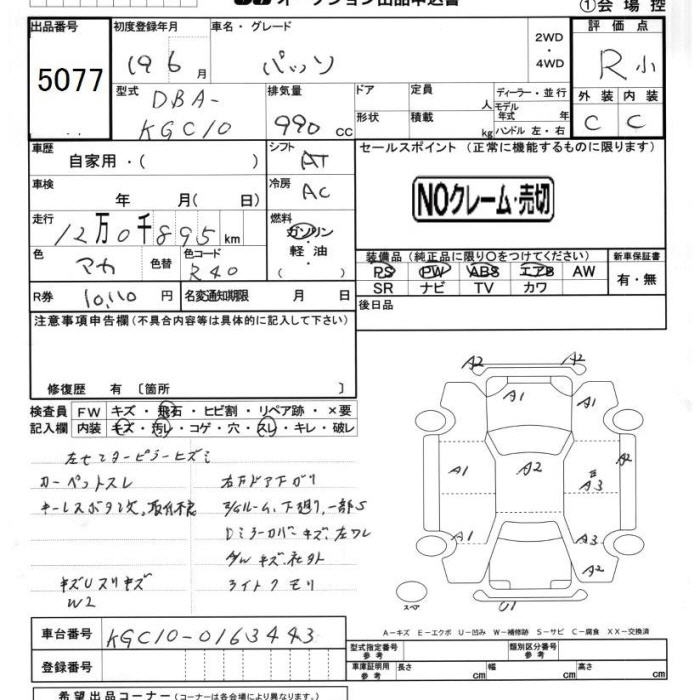 オークション出品申込書
①会場控
出品番号
5077
初度登録年月
19 6月
車名・グレード
パッソ
2WD
・4WD
評価点
R小
外装 内装
C C
型式
DBA-
KGC10
排気量
990 cc
ドア
形状
定員
人
積載
kg
ディーラー・並行
モデル
年式 年
ハンドル 左・右
車歴
自家用・( )
シフト
AT
セールスポイント (正常に機能するものに限ります)
NOクレーム・売切
車検
年 月( 日)
冷房
AC
走行
12万0千895km
燃料
ガソリン
・
軽油
・
( )
色
色替
色コード
R40
装備品(純正品に限り○をつけてください)
PS PW ABS エアB AW
SR ナビ TV カワ
新車保証書
有・無
R券
10,110円
名変通知期限 月 日
後日品
注意事項申告欄(不具合内容等は具体的に記入して下さい)
修復歴 有〔箇所 〕
検査員
記入欄
FW キズ・飛石・ヒビ割・リペア跡・×要
内装 キズ・汚れ・コゲ・穴・スレ・キレ・破レ
左センターピラーヒズミ
カーペットスレ
キーレスボタン欠。取付不良
右Fドア下ガリ
下廻り、一部S
Dミラーカバーキズ、左ワレ
キズ、社外
ライトクモリ
キズUスリキズ
W2
A2 A2
A1 A1
A1 A2 A3 A2
A1 A3
A2
U1
スペア
A-キズ E-エクボ U-凹み W-補修跡 S-サビ C-腐食 XX-交換済
車台番号
KGC10-0163443
登録番号
型式指定番号
参考
類別区分番号
参考
車庫証明用
参考
長さ cm
幅 cm
高さ cm
希望出品コーナー(コーナーは各会場により異なります。)